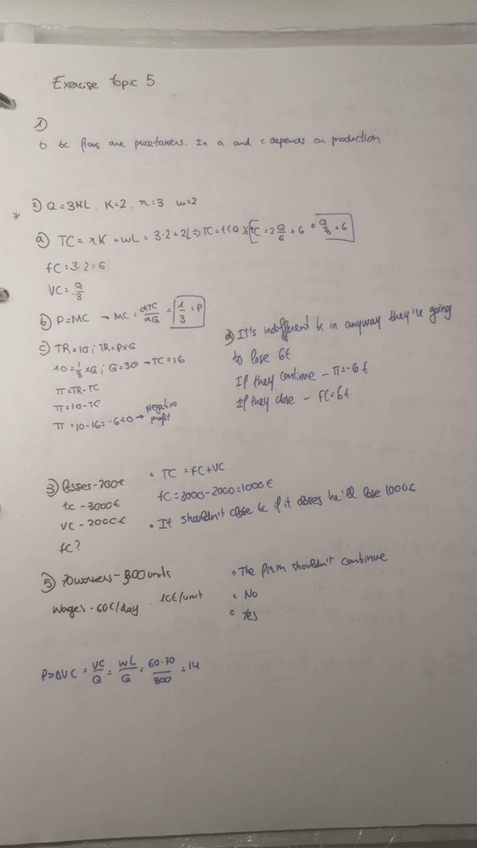 Exercise topic 5
1)
b bc firms are pricetakers. In a and c depends on production
2) Q=3KL, K=2, r=3 w=2
a) TC= rK +wL = 3·2+2L => TC=f(Q) TC=2Q/6+6 = Q/3+6
fC=3·2=6
VC=Q/3
b) P=MC → MC= dTC/dQ = 1/3 = P
c) TR=10; TR=PxQ
10=1/3xQ; Q=30 → TC=16
π=TR-TC
π=10-TC
π=10-16=-6<0 → Negative profit
d) It's indifferent bc in anyway they're going
to lose 6€
If they continue - π=-6€
If they close - FC=6€
3) losses-700€
tc -3000€
VC -2000€
fC?
• TC = FC+VC
fC=3000-2000=1000€
• It shouldn't close bc if it closes he'll lose 1000€
5) 70 workers - 300 units
Wages - 60€/day. 10€/unit
• The firm shouldn't continue
• No
• Yes
P>AVC = VC/Q = WL/Q = 60·70/300 = 14